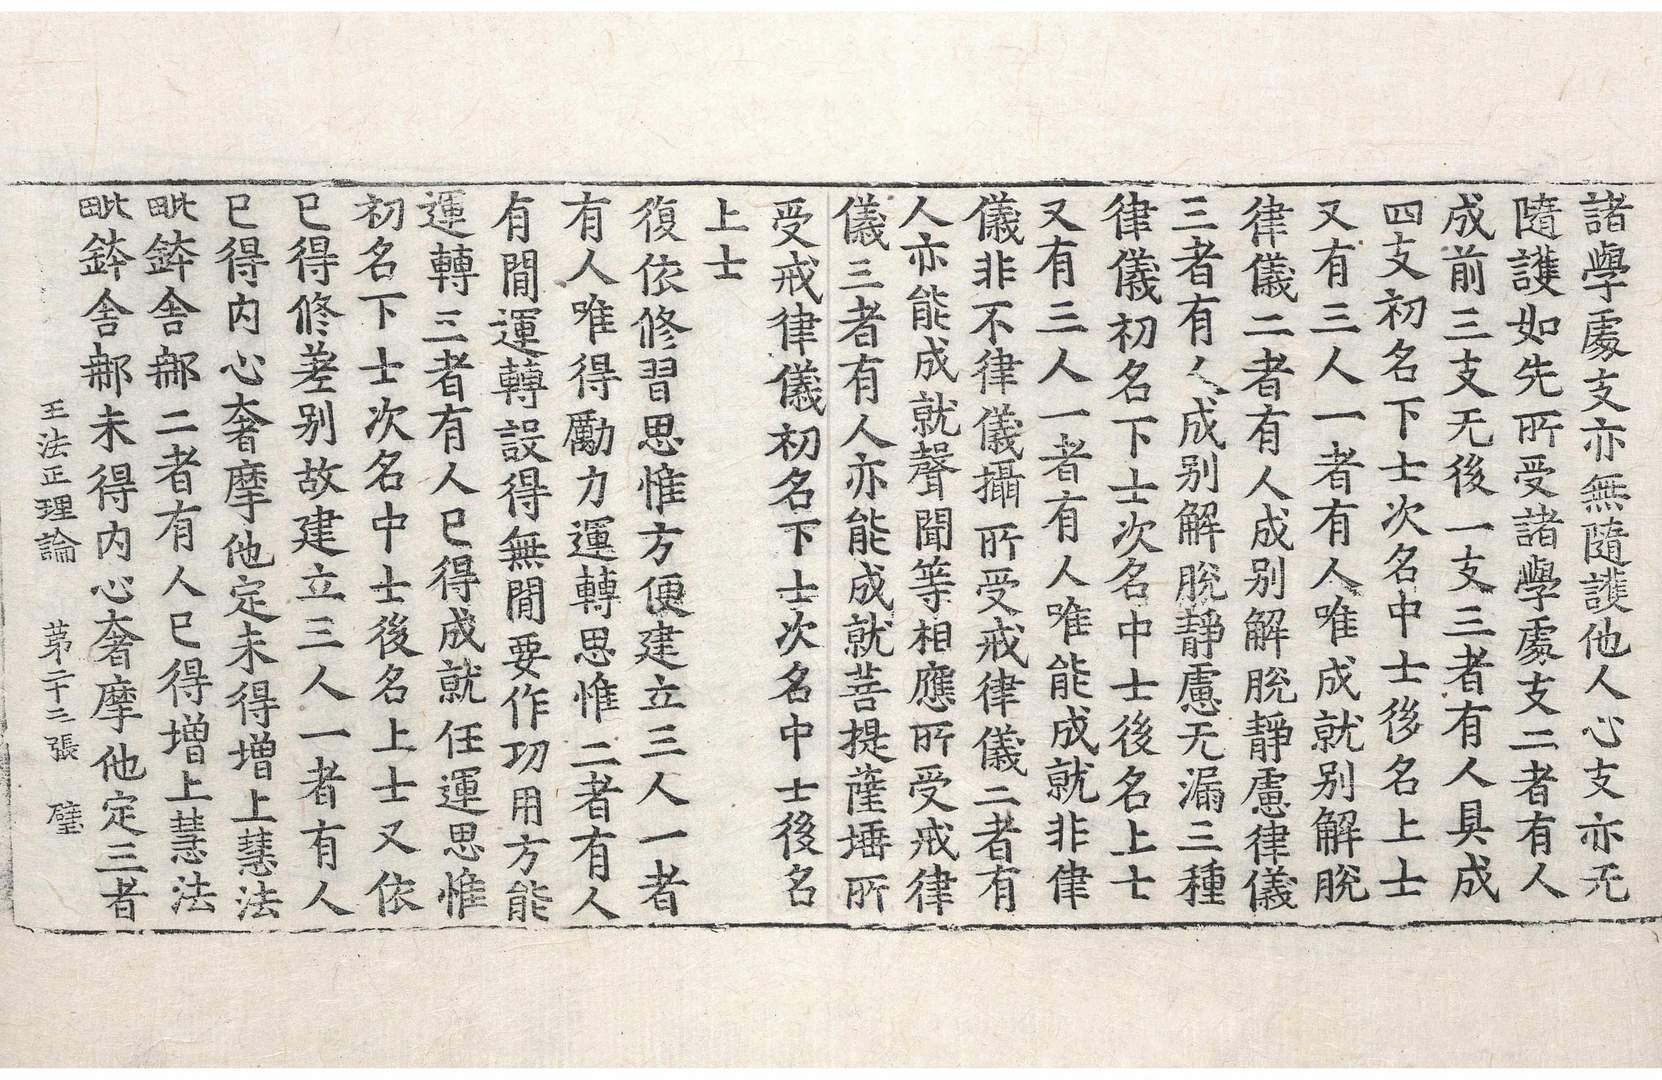 諸學處支亦無隨護他人心支亦无
隨護如先所受諸學處支二者有人
成前三支无後一支三者有人具成
四支初名下士次名中士後名上士
又有三人一者有人唯成就别解脫
律儀二者有人成别解脫靜慮律儀
三者有人成别解脫靜慮无漏三種
律儀初名下士次名中士後名上士
又有三人一者有人唯能成就非律
儀非不律儀攝所受戒律儀二者有
人亦能成就聲聞等相應所受戒律
儀三者有人亦能成就菩提薩埵所
受戒律儀初名下士次名中士後名
上士
復依修習思惟方便建立三人一者
有人唯得勵力運轉思惟二者有人
有間運轉設得無間要作功用方能
運轉三者有人已得成就任運思惟
初名下士次名中士後名上士又依
已得修差别故建立三人一者有人
已得内心奢摩他定未得增上慧法
毗鉢舍那二者有人已得增上慧法
毗鉢舍那未得内心奢摩他定三者
王法正理論 苐二十二張 璧